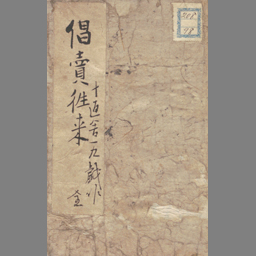 倡賣往来
十返舎一九戯作
全